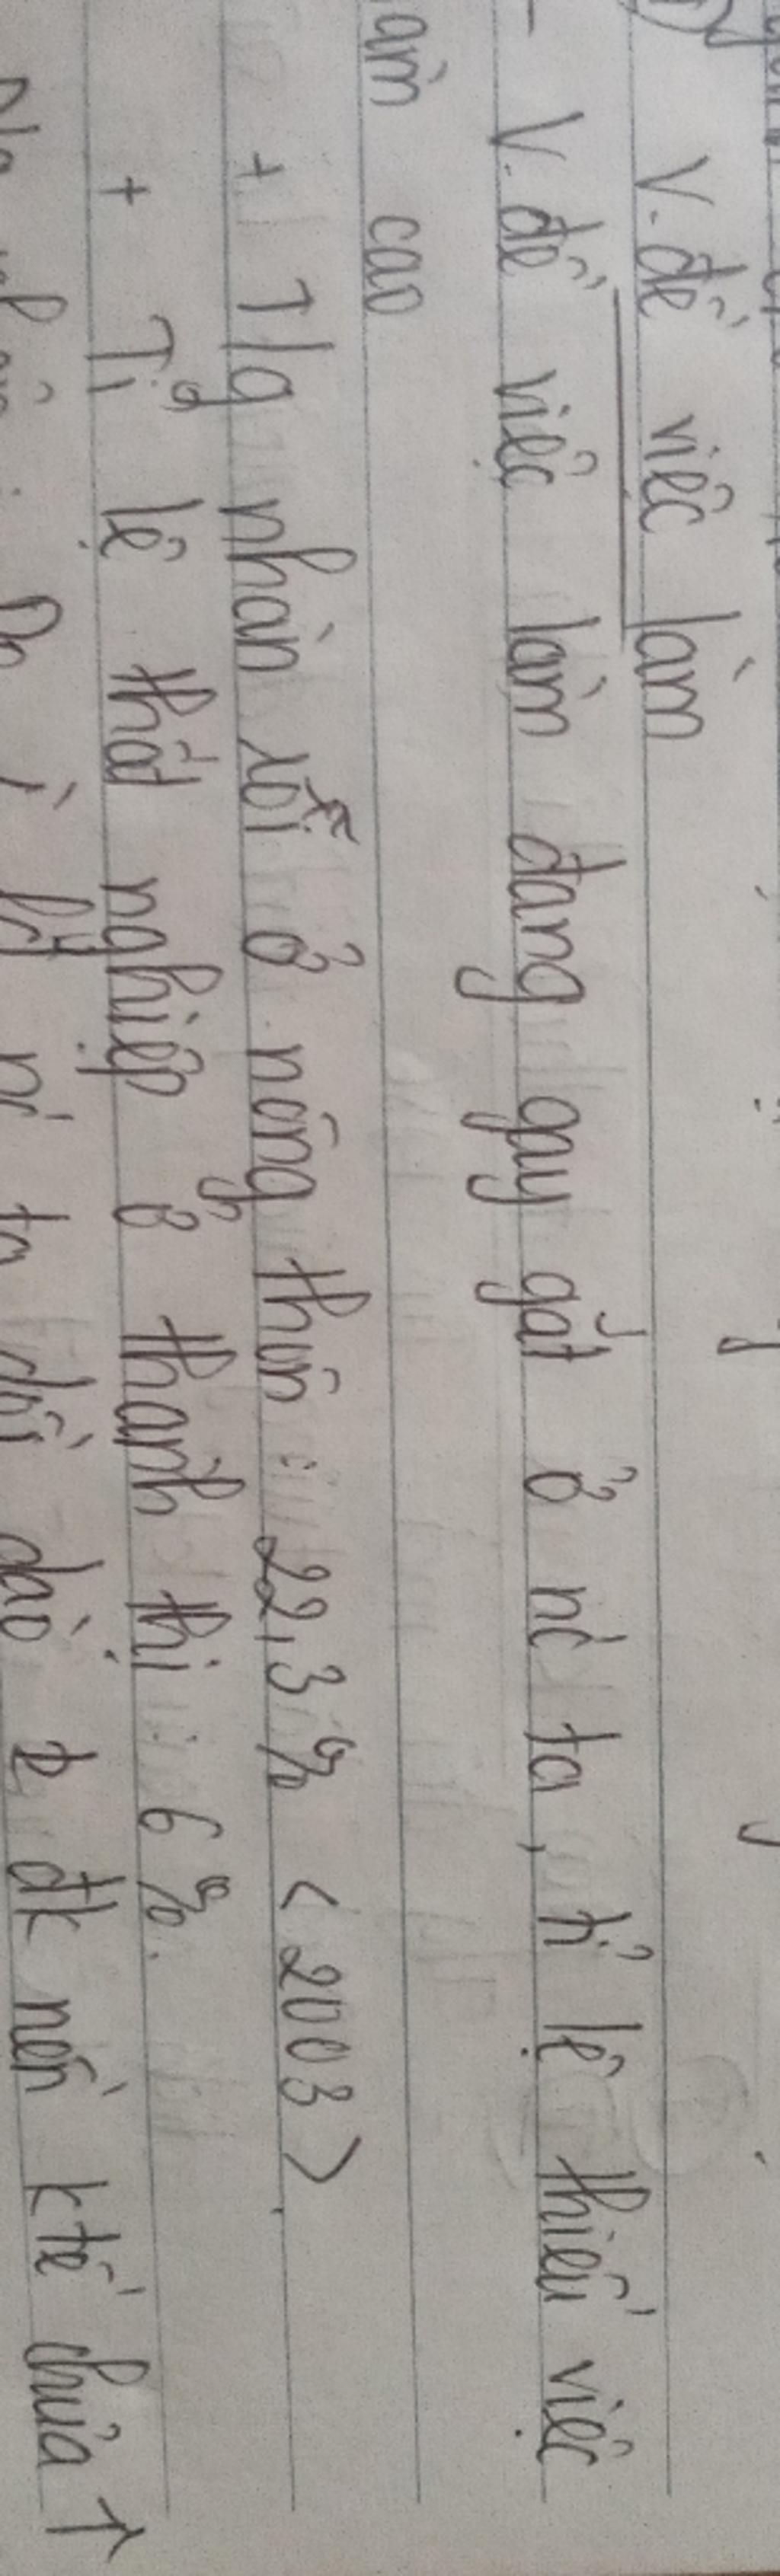 V.đề việc làm
- V.đề việc làm đang gay gắt ở nc ta, tỉ lệ thiếu việc
làm cao
+ T/g nhàn rỗi ở nông thôn : 22,3% < 2003 >
+ Tỉ lệ thất nghiệp ở thành thị : 6%.
ta dồi dào đk nền ktế chưa ↑